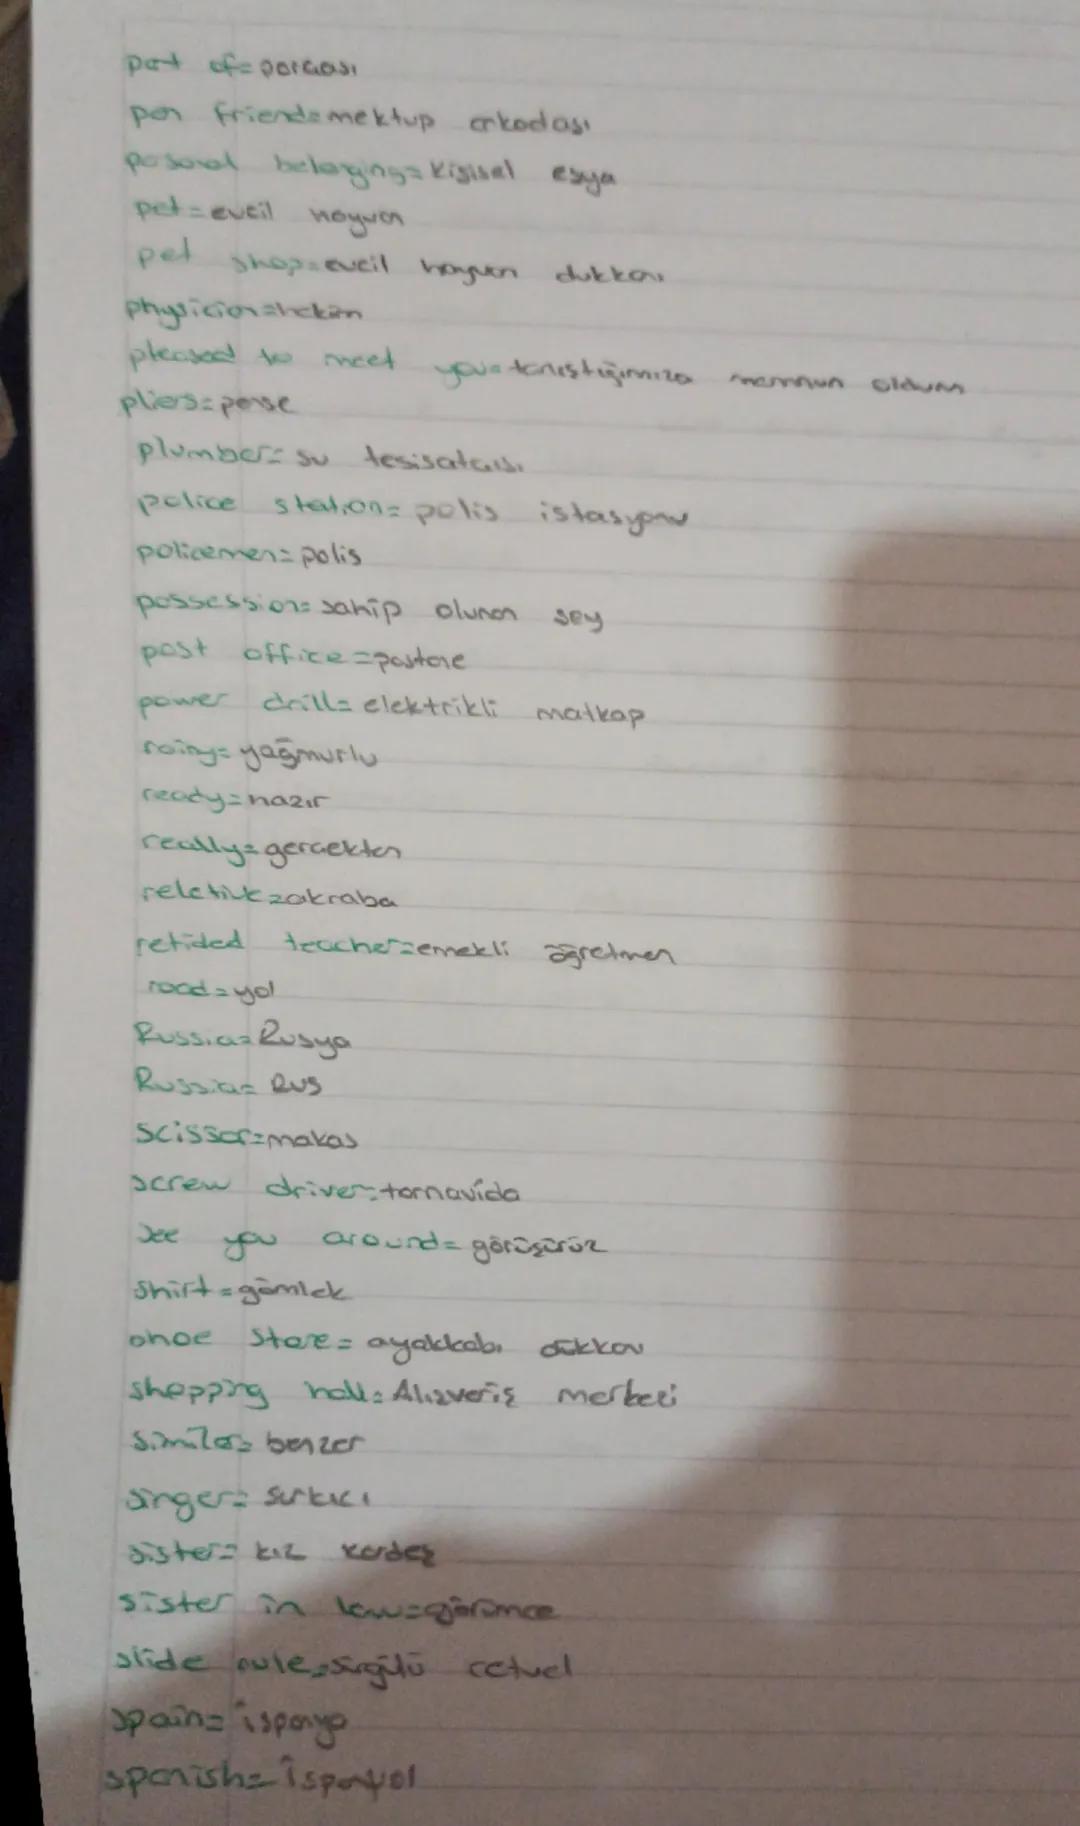 part of=parçası
pen friend=mektup arkadaşı
posoral belorging=kişisel eşya
pet=evcil hayvan
pet shop=evcil hayvan dukkanı
physician=hekim
pleased to meet you=tanıştığımıza memnun oldum
pliers=pense
plumber=su tesisatcısı
police station=polis istasyonu
policemen=polis
possession=sahip olunan şey
post office=postane
power drill=elektrikli matkap
rainy=yağmurlu
ready=hazır
really=gerçekten
reletive=akraba
retided teacher=emekli öğretmen
road=yol
Russia=Rusya
Russia=Rus
scissor=makas
screw driver=tornavida
see you around=görüşürüz
shirt=gömlek
shoe store=ayakkabı dükkanı
shopping hall=Alışveriş merkezi
similar=benzer
singer=şarkıcı
sister=kız kardeş
sister in law=görümce
slide rule=sürgülü cetvel
spain=ispanya
spanish=İspanyol